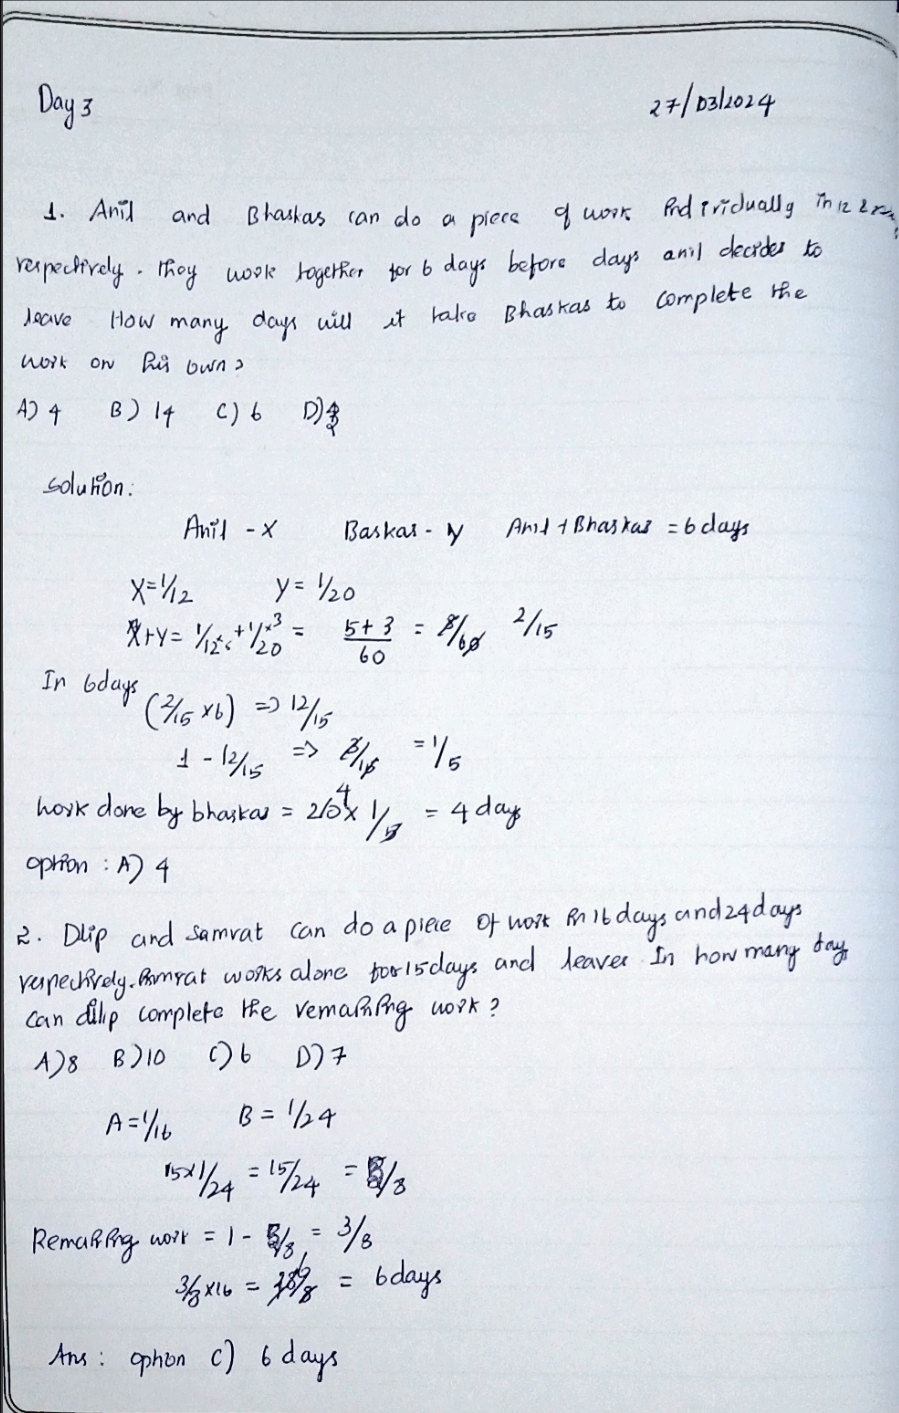 Day 3
27/03/2024
1. Anil and Bhaskas can do a piece of work individually in 12 &
respectively. They work together for 6 days before days anil decides to
leave How many days will it take Bhaskas to complete the
work on his own?
A) 4 B) 14 C) 6 D)
solution:
Anil - X Baskas - y Anil + Bhaskas = 6 days
X=1/12 y = 1/20
X+Y= 1/12×5 + 1/20×3 = 5+3/60 = 8/60 2/15
In 6days
(2/15 x6) => 12/15
1 - 12/15 => 3/15 = 1/5
work done by bhaskas = 20 x 1/5 4 = 4 days
option : A) 4
2. Dlip and Samrat can do a piece Of work in 16 days and 24 days
respectively. Samrat works alone for 15 days and leaves In how many day
can dilip complete the remaining work?
A)8 B)10 C)6 D)7
A=1/16 B = 1/24
15x1/24 = 15/24 = 5/8
Remaining work = 1 - 5/8 = 3/8
3/8 x16 = /8 6 = 6days
Ans : option C) 6 days